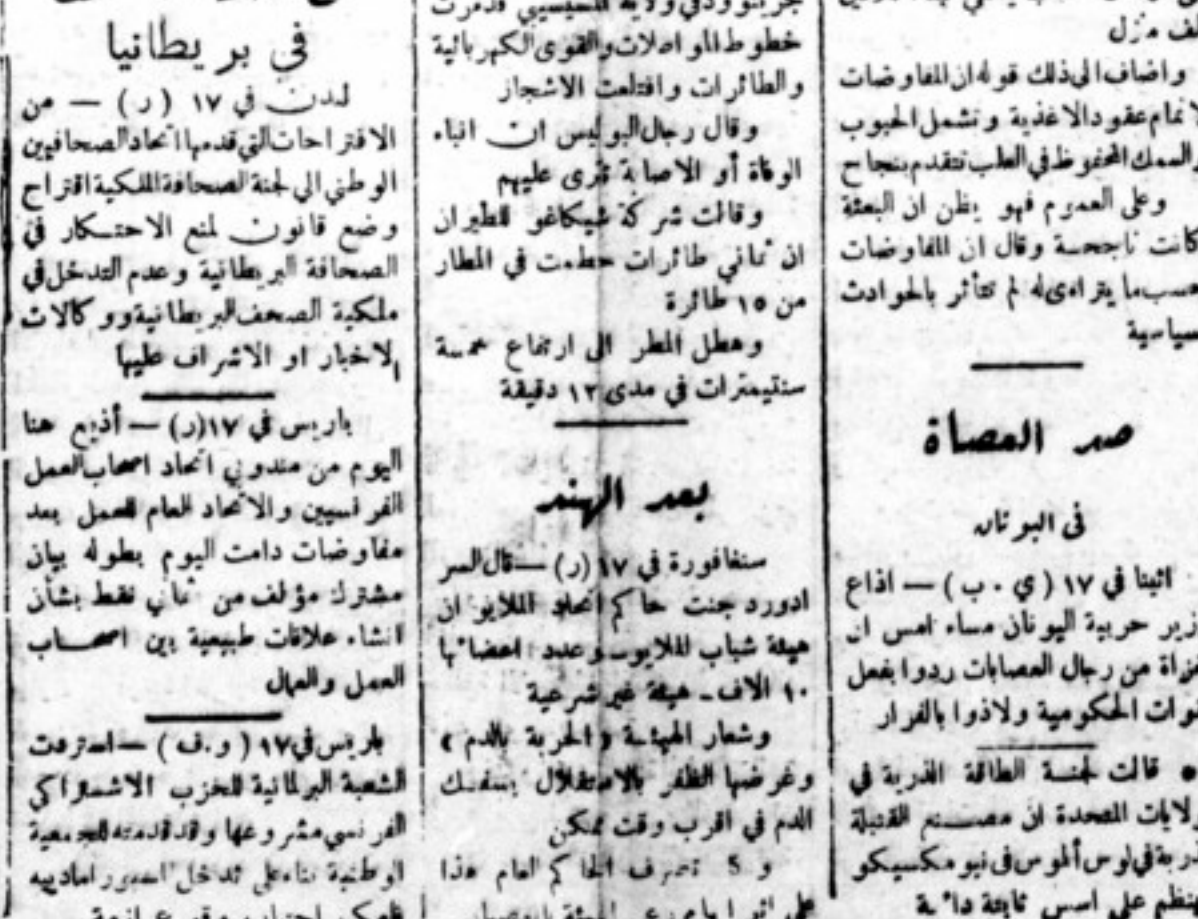 مف مزل
واضاف الى ذلك قوله ان المفاوضات
لاتمام عقود الاغذية وتشمل الحبوب
والسمك المحفوظ في العلب تتقدم بنجاح
وعلى العموم فهو يظن ان البعثة
كانت ناجحة وقال ان المفاوضات
حسب ما يتراءى له لم تتأثر بالحوادث
سياسية
صد العصاة
في اليونان
اثينا في ١٧ (ي . ب) — اذاع
زير حربية اليونان مساء امس ان
غزاة من رجال العصابات ردوا بفعل
قوات الحكومية ولاذوا بالفرار
قالت لجنة الطاقة الذرية في
لولايات المتحدة ان مصنع القنبلة
ذرية في لوس ألموس في نيو مكسيكو
ينظم على اسس ثابتة دائمة
خطوط المواصلات والقوى الكهربائية
والطائرات واقتلعت الاشجار
وقال رجال البوليس ان انباء
الوفاة أو الاصابة تترى عليهم
وقالت شركة شيكاغو للطيران
ان ثماني طائرات حطمت في المطار
من ١٥ طائرة
وهطل المطر الى ارتفاع خمسة
سنتيمترات في مدى ١٢ دقيقة
بعد الهند
سنغافورة في ١٧ (ر) — قال السر
ادورد جنت حاكم اتحاد الملايو ان
هيئة شباب الملايو وعدد اعضائها
١٠ الاف - هيئة غير شرعية
وشعار الهيئة « الحرية بالدم »
وغرضها الظفر بالاستقلال بسفك
الدم في اقرب وقت ممكن
و 5 تصرف الحاكم العام هذا
في بريطانيا
لندن في ١٧ (ر) — من
الاقتراحات التي قدمها اتحاد الصحافيين
الوطني الى لجنة الصحافة الملكية اقتراح
وضع قانون لمنع الاحتكار في
الصحافة البريطانية وعدم التدخل في
ملكية الصحف البريطانية ووكالات
الاخبار او الاشراف عليها
باريس في ١٧ (ر) — أذيع هنا
اليوم من مندوبي اتحاد اصحاب العمل
الفرنسيين والاتحاد العام للعمل بعد
مفاوضات دامت اليوم بطوله بيان
مشترك مؤلف من ثماني نقط بشأن
انشاء علاقات طبيعية بين اصحاب
العمل والعمال
باريس في ١٧ (و.ف) — استردت
الشعبة البرلمانية للحزب الاشتراكي
الفرنسي مشروعها وقد قدمته للجمعية
الوطنية بناء على تدخل المسيو رامادييه